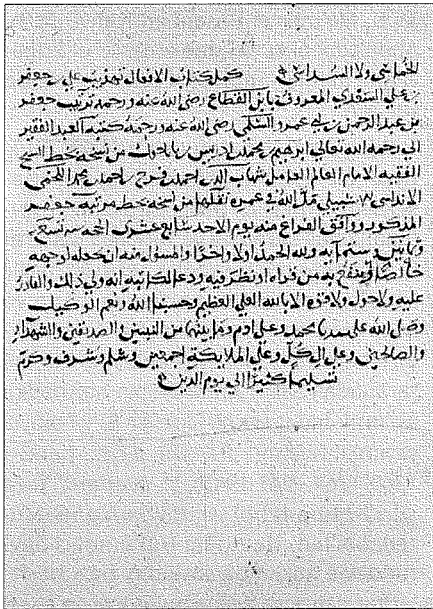 الخماسي ولا السداسي كمل كتاب الافعال تهذيب علي بن جعفر
بن علي السعدي المعروف بابن القطاع رضي الله عنه ورحمه ترتيب جعفر
بن عبد الرحمن بن عمرو السلمي رضي الله عنه ورحمه كتبه العبد الفقير
الي رحمة الله تعالي ابرهيم بن محمد بن ادريس من نسخة بخط الشيخ
الفقيه الامام العالم العامل شهاب الدين احمد بن فرح بن احمد بن محمد اللخمي
الاندلسي الاشبيلي مد الله في عمره نقلها من نسخة بخط مرتبه جعفر
المذكور ووافق الفراغ منه يوم الاحد سابع عشرى الحجة سنة تسع
وثمانين وستماية ولله الحمد اولا واخرا والمسؤل منه ان يجعله لوجهه
خالصا وينفع به من قراه او نظر فيه ودعا لكاتبه انه ولي ذلك والقادر
عليه ولا حول ولا قوة الا بالله العلي العظيم وحسبنا الله ونعم الوكيل
وصلى الله على سيدنا محمد وعلى ادم وما بينهما من النبيين والصديقين والشهداء
والصالحين وعلى ال كل وعلى الملايكة اجمعين وسلم وشرف وكرم
تسليما كثيرا الي يوم الدين